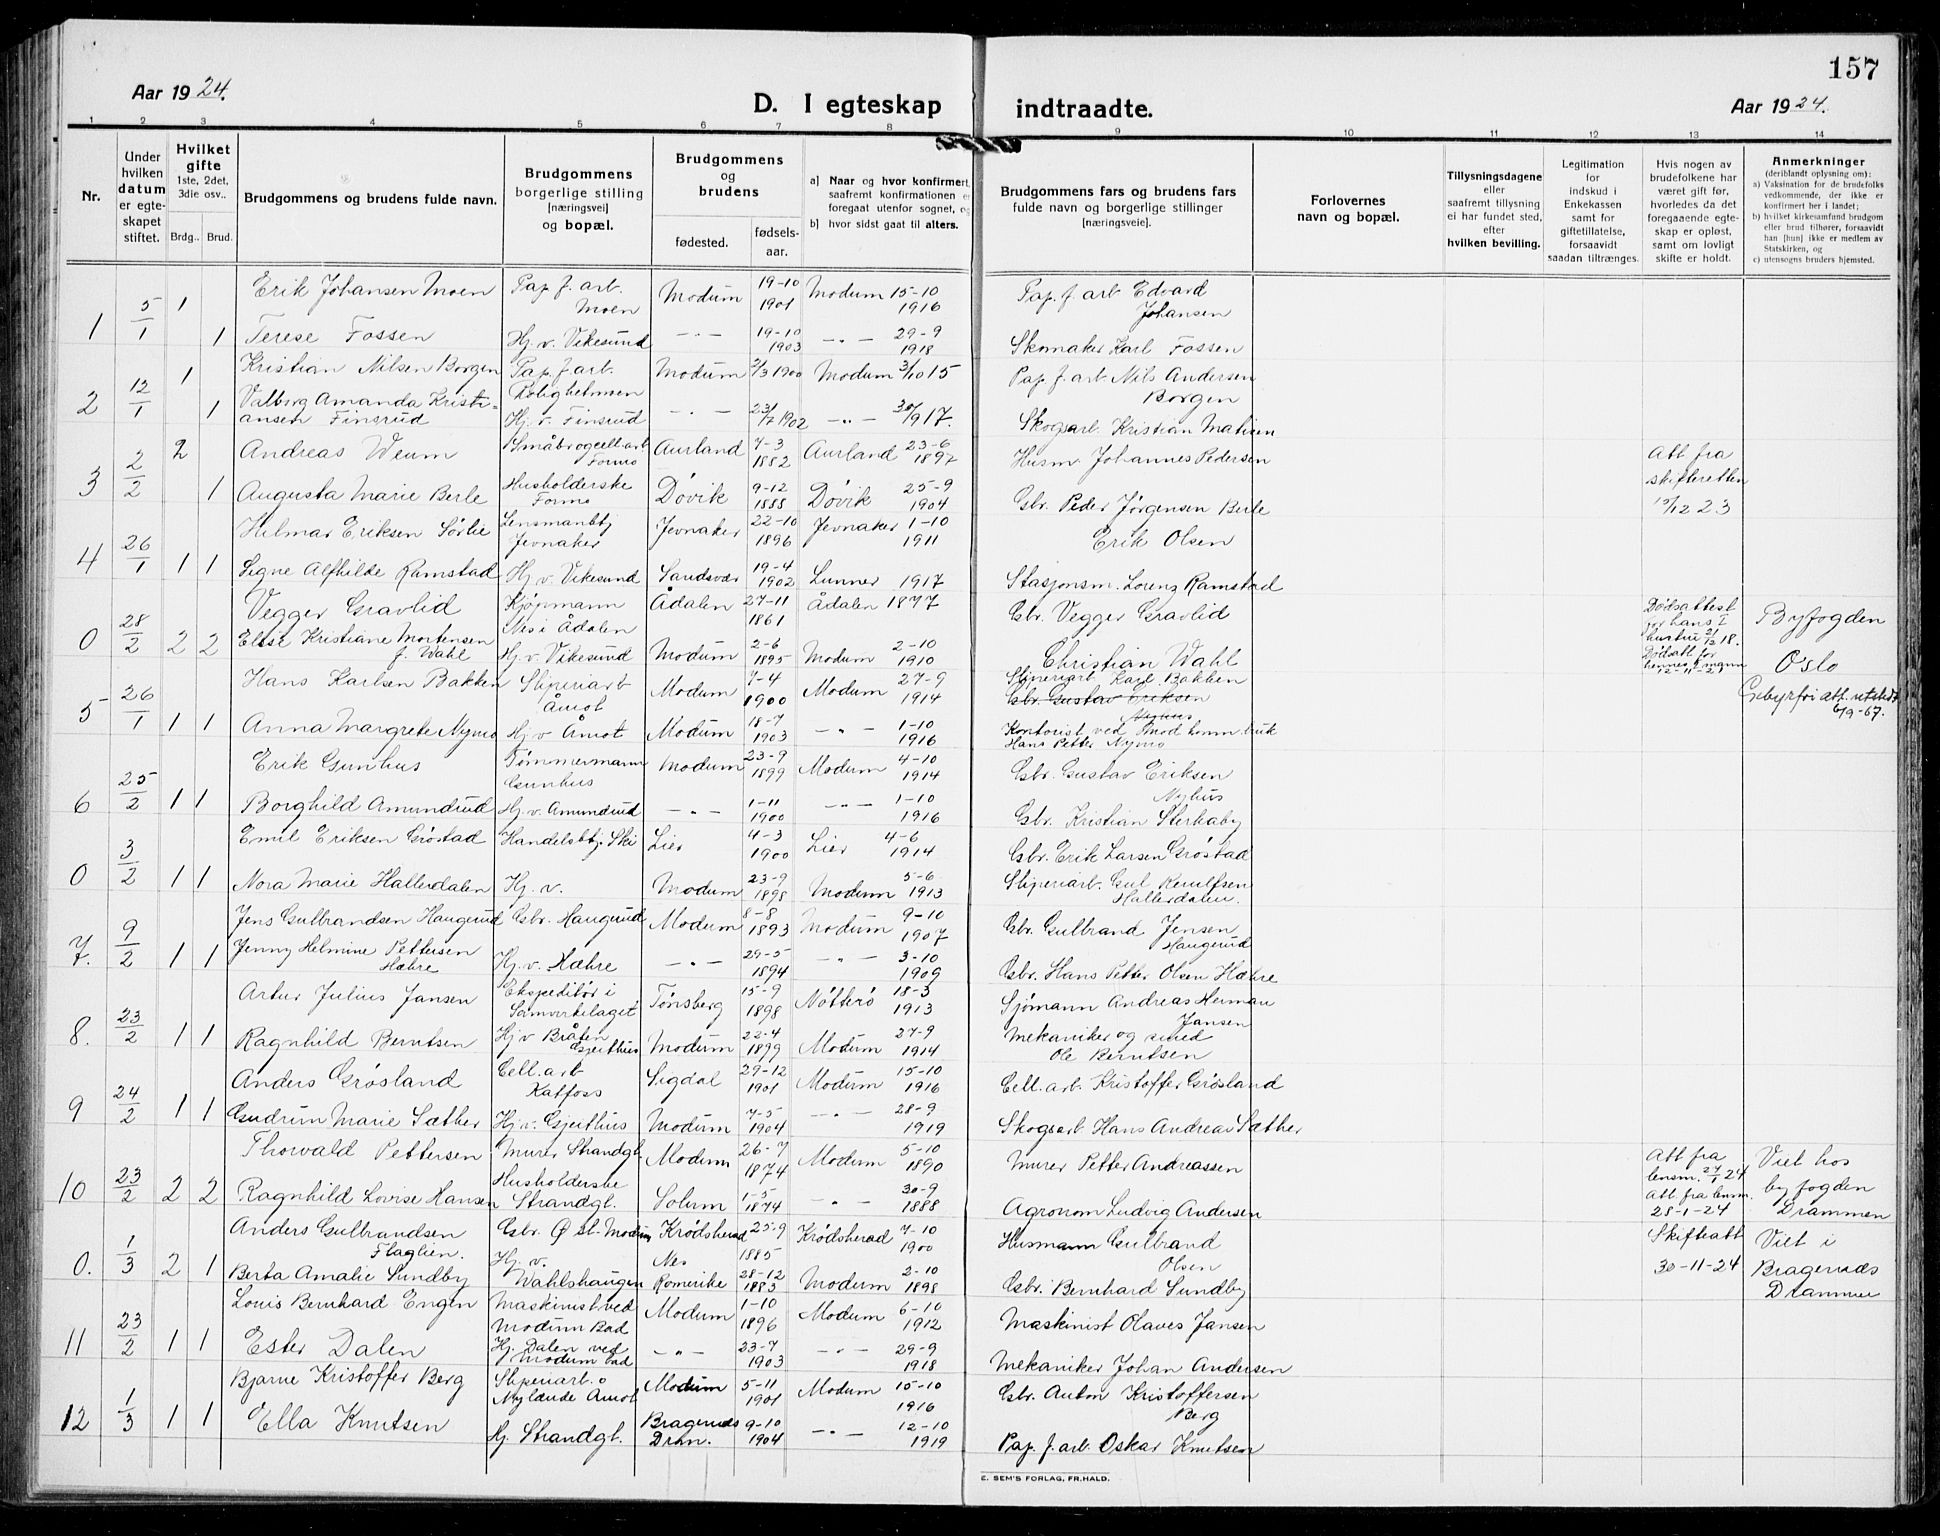 157
Aar 1924.
D. I egteskap indtraadte.
Aar 1924.
1 2 3 4 5 6 7 8 9 10 11 12 13 14
Nr.
Under hvilken datum er egteskapet stiftet.
Hvilket gifte 1ste, 2det, 3die osv..
Brdg.. Brud.
Brudgommens og brudens fulde navn.
Brudgommens borgerlige stilling [næringsvei] og bopæl.
Brudgommens og brudens
fødested.
fødselsaar.
a] Naar og hvor konfirmert, saafremt konfirmationen er foregaat utenfor sognet, og
b] hvor sidst gaat til alters.
Brudgommens fars og brudens fars fulde navn og borgerlige stillinger [næringsveie].
Forlovernes navn og bopæl.
Tillysningsdagene eller saafremt tillysning ei har fundet sted, efter hvilken bevilling.
Legitimation for indskud i Enkekassen samt for giftetillatelse, forsaavidt saadan tiltrænges.
Hvis nogen av brudefolkene har været gift før, hvorledes da det foregaaende egteskap er opløst, samt om lovligt skifte er holdt.
Anmerkninger (deriblandt oplysning om):
a) Vaksination for de brudefolks vedkommende, der ikke er konfirmert her i landet;
b) hvilket kirkesamfund brudgom eller brud tilhører, forsaavidt han [hun] ikke er medlem av Statskirken, og
c) utensogns bruders hjemsted.
1 5/1 1 Erik Johansen Moen Pap. f. arb. Moen Modum 19-10 1901 Modum 15-10 1916 Pap. f. arb Edvard Johansen
1 Terese Fossen Hj. v. Vikesund -"- 19-10 1903 -"- 29-9 1918 Skomaker Karl Fossen
2 12/1 1 Kristian Nilsen Borgen Pap. f. arb. Rolighetmoen Modum 2/3 1900 Modum 3/10 15 Pap. f. arb. Nils Andersen Borgen
1 Valborg Amanda Kristiansen Finsrud Hj. v. Finsrud -"- 23/7 1902 -"- 30/9 17. Skogsarb. Kristian Mathisen
3 2/2 2 Andreas Weum Småbr og cell. arb Formo Aurland 7-3 1882 Aurland 23-6 1897 Husm. Johannes Pedersen Att fra skifteretten 19/12 23
1 Augusta Marie Berle Husholderske Formo Døvik 9-12 1888 Døvik 25-9 1904 Gbr. Peder Jørgensen Berle
4 26/1 1 1 Helmar Eriksen Sørlie Lensmanbtj Jevnaker Jevnaker 22-10 1896 Jevnaker 1-10 1911 Erik Olsen
Signe Alfhilde Ramstad Hj. v. Vikesund Sandsvær 19-4 1902 Lunner 1917 Stasjonsm. Lorenz Ramstad
0 28/2 2 2 Vegger Gravlid Kjøpmann Nes i Ådalen Ådalen 27-11 1861 Ådalen 1877 Gbr. Vegger Gravlid Dødsattest for hans I hustru 21/12 18. Dødsatt for hennes mann 12-11-21 Byfogden Oslo
Elise Kristiane Mortensen f. Wahl Hj. v. Vikesund Modum 2-6 1895 Modum 2-10 1910 Christian Wahl
5 26/1 1 1 Hans Karlsen Bakken Sliperiarb Åmot Modum 7-4 1900 Modum 27-9 1914 Sliperiarb Karl Bakken Gbr. Gustav Eriksen Nyhus Gebyrfri att. utstedt 6/9-67.
Anna Margrete Nymo Hj v Åmot Modum 18-7 1903 -"- 1-10 1916 Kontorist ved Mod. komm. bruk Hans Petter Nymo
6 25/2 1 1 Erik Gunhus Tømmermann Gunhus Modum 23-9 1899 Modum 4-10 1914 Gbr. Gustav Eriksen Nyhus
Borghild Amundrud Hj. v. Amundrud -"- 1-11 1900 -"- 1-10 1916 Gbr. Kristian Sterkaby
0 3/2 1 1 Emil Eriksen Grøstad Handelsbtj. Ski Lier 4-3 1900 Lier 4-6 1914 Gbr. Erik Larsen Grøstad
Nora Marie Hallerdalen Hj. v. Modum 23-9 1898 Modum 5-6 1913 Sliperiarb. Gul Hallerdalen.
7. 9/2 1 1 Jens Gulbrandsen Haugerud Gbr. Haugerud Modum 8-8 1893 Modum 9-10 1907 Gbr. Gulbrand Jensen Haugerud
Jenny Helmine Pettersen Hæhre Hj. v. Hæhre -"- 29-5 1894 -"- 3-10 1909 Gbr. Hans Petter Olsen Hæhre
8. 23/2 1 1 Artur Julius Jansen Ekspeditør i Samvirkelaget Tønsberg 15-9 1898 Nøtterø 18-3 1913 Sjømann Andreas Herman Jansen
Ragnhild Berntsen Hj v Bråten Gjeithus Modum 22-4 1899 Modum 27-9 1914 Mekaniker og smed Ole Berntsen
9 24/2 1 1 Anders Grøsland Cell. arb Katfoss Sigdal 29-12 1901 Modum 15-10 1916 Cell. arb. Kristoffer Grøsland
Gudrun Marie Sæther Hj. v. Gjeithus Modum 7-5 1904 -"- 28-9 1919 Skogsarb Hans Andreas Sæther
10 23/2 2 2 Thorvald Pettersen Murer Strandgt. Modum 26-7 1874 Modum 5-10 1890 Murer Petter Andreassen Att fra lensm. 27/1 24 Att. fra lensm. 28-1-24 Viet hos byfogden Drammen
Ragnhild Lovise Hansen Husholderske Strandgt. Solum 1-5 1874 -"- 30-9 1888 Agronom Ludvig Andersen
0. 1/3 2 1 Anders Gulbrandsen Flaglien. Gbr. Ø st. Modum Krødsherad 25-9 1885 Krødsherad 7-10 1900 Husmann Gulbrand Olsen Skifteatt 30-11-24 Viet i Bragernæs Drammen
Berta Amalie Sundby Hj. v. Wahlshaugen Nes Romerike 28-12 1883 Modum 2-10 1898 Gbr. Bernhard Sundby
11 23/2 1 1 Louis Bernhard Engen Maskinist ved Modum Bad Modum 1-10 1896 Modum 6-10 1912 Maskinist Olaves Jansen
Ester Dalen Hj. Dalen ved Modum bad -"- 23-7 1903 -"- 29-9 1918 Mekaniker Johan Andersen
12 1/3 1 1 Bjarne Kristoffer Berg Sliperiarb. Nylænde Åmot Modum 5-11 1901 Modum 15-10 1916 Gbr. Anton Kristoffersen Berg
Ella Knutsen Hj. Strandgt. Bragernæs Dram. 9-10 1904 -"- 12-10 1919 Pap. f. arb. Oskar Knutsen
E. SEM'S FORLAG, FR.HALD.